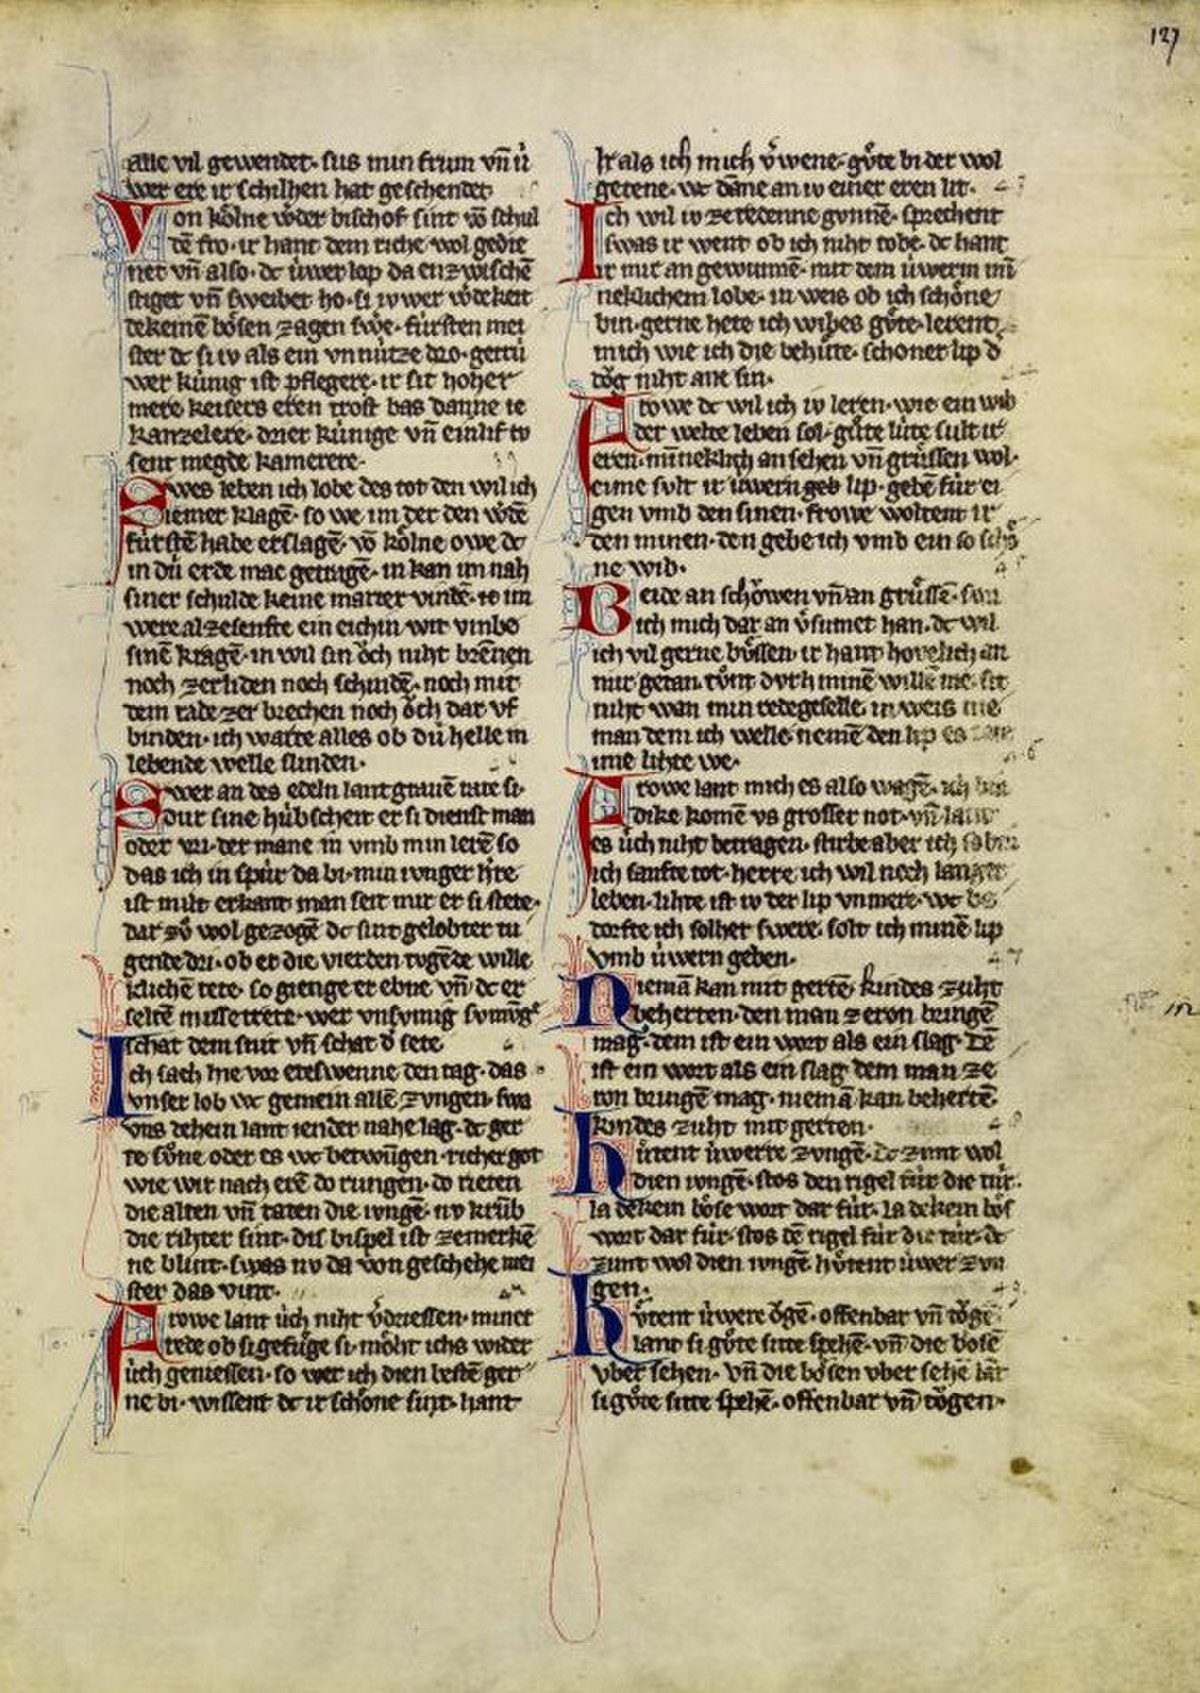 127
alle vil gewendet· sus min frum vn̄ ú
wer ere ir schilhen hat geschendet·
Von kôlne w̾der bischof sint vō schul
dē fro· ir hant dem riche wol gedie
net vn̄ also· dc úwer lop da enzwischē
stiget vn̄ sweibet ho· si ivwer w̾dekeit
dekeinē bôsen zagen swe̾· fúrsten mei
ster dc si iv als ein vnnútze dro· getrú
wer kúnig ist pflegere· ir sit hoher
mere keisers eren trost bas danne ie
kanzelere· drier kúnige vn̄ einlif tv
sent megde kamerere·
Swes leben ich lobe des tot den wil ich
iemer klagē· so we im der den w̾dē
fúrstē habe erslagē· vō kôlne owe dc
in dú erde mac getragē· in kan im nah
siner schulde keine marter vindē· im
were alzesenfte ein eichin wit vmbe
sinē kragē· in wil sin ôch niht brēnen
noch zerliden noch schindē· noch mit
dem rade zer brechen noch ôch dar vf
binden· ich warte alles ob dú helle in
lebende welle slinden·
Swer an des edeln lantgrauē rate si·
dur sine húbscheit er si dienstman
oder vri· der mane in vmb min lerē so
das ich in spúr da bi· min ivnger h̾re
ist milt erkant man seit mir er si stete·
dar zů wol gezogē dc sint gelobter tu
gende dri· ob er die vierden tvgēde wille
klichē tete· so gienge er ebne vn̄ dc er
seltē missetrete· wer vnsvmig svmvg̾
schat dem snit vn̄ schat d̾ sete
Ich sach hie vor eteswenne den tag· das
vnser lob wc gemein allē zvngen· swa
vns dehein lant iender nahe lag· dc ger
te sůne oder es wc betwūgen· richer got
wie wir nach erē do rungen· do rieten
die alten vn̄ taten die ivngē· nv krūb
die rihter sint· dis bispel ist zemerkē
ne blint· swas nv da von geschehe mei
ster das vint·
Frowe lant úch niht v̾driessen· miner
rede ob si gefůge si· môht ichs wider
úch geniessen· so wer ich dien bestē ger
ne bi· wissent dc ir schône sint· hant
Ir als ich mich v̾wene· gůte bi der wol
getene· wc dāne an iv einer eren lit·
Ich wil iv ze redenne gvnnē· sprechent
swas ir went ob ich niht tobe· dc hant
ir mir an gewunnē· mit dem úwerm mī
neklichem lobe· in weis ob ich schône
bin· gerne hete ich wibes gůte· lerent
mich wie ich die behúte· schoner lip d̾
tôg niht ane sin·
Frowe dc wil ich iv leren· wie ein wib
der welte leben sol· gůte lúte sult ir
eren· mīneklich an sehen vn̄ grůssen wol·
eime svlt ir úwern geb lip· gebē fúr ei
gen vmb den sinen· frowe woltent ir
den minen· den gebe ich vmb ein so schô
ne wib·
Beide an schôwen vn̄ an grůssē· swa
ich mich dar an v̾sumet han· dc wil
ich vil gerne bůssen· ir hant hovelich an
mir getan· tůnt dvrh minē willē me· sit
niht wan min redegeselle· in weis nie
man dem ich welle nemē den lip es
ime lihte we·
Frowe lant mich es also wagē· ich bin
dike komē vs grosser not· vn̄ lant
es úch niht betragen· stirbe aber ich so bin
ich sanfte tot· herre ich wil noch langer
leben· lihte ist iv der lip vnmere· wc be
dorfte ich solher swere· solt ich minē lip
vmb úwern geben·
Niemā kan mit gertē· kindes zuht
beherten· den man zeren bringē
mag· dem ist ein wort als ein slag· Dē
ist ein wort als ein slag dem man ze
ren bringē mag· niemā kan behertē
kindes zuht mit gerten·
Hůtent úwerre zvngē· dc zimt wol
dien ivngē· stos den rigel fúr die túr·
la dekein bôse wort dar fúr· la dekein bôs
wort dar fúr· stos dē rigel fúr die túr· dc
zimt wol dien ivngē· hůtent úwer zvn
gen·
Hůtent úwere ôgē· offenbar vn̄ tôgē
lant si gůte sitte spehē· vn̄ die bôsē
vber sehen· vn̄ die bôsen vber sehē lat
si gůte sitte spehē· offenbar vn̄ tôgen·